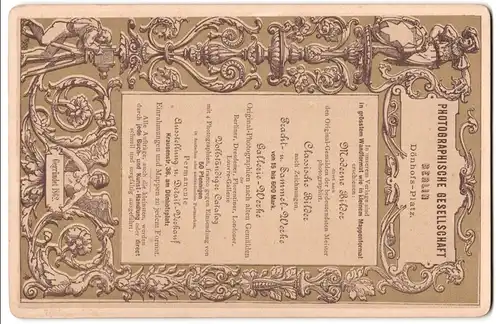 PHOTOGRAPHISCHE GESELLSCHAFT
BERLIN
Dönhofs-Platz.
In unserem Verlage sind
in grössten Wandformat wie in kleinem Mappenformat
erschienen:
Moderne Bilder
direct nach
den Original-Gemälden der bedeutendsten Meister
photographirt.
Classische Bilder
nach Zeichnungen.
Pracht- u. Sammel-Werke
von 15 bis 600 Mark.
Gallerie-Werke
Original-Photographien nach den Gemälden
Berliner, Dresdener, Florentiner, Londoner,
Louvre
Vollständiger Catalog
mit 4 Photographien, franco gegen Einsendung von
50 Pfennigen
in Briefmarken.
Permanente
Ausstellung u. Detail-Verkauf
am Dönhofsplatz.
Einrahmungen und Mappen zu jedem Format.
Alle Aufträge, auch die kleinsten, werden
durch jede Buch- und Kunst-Handlung oder direct
schnell und sorgfältig ausgeführt.
Gegründet 1862.